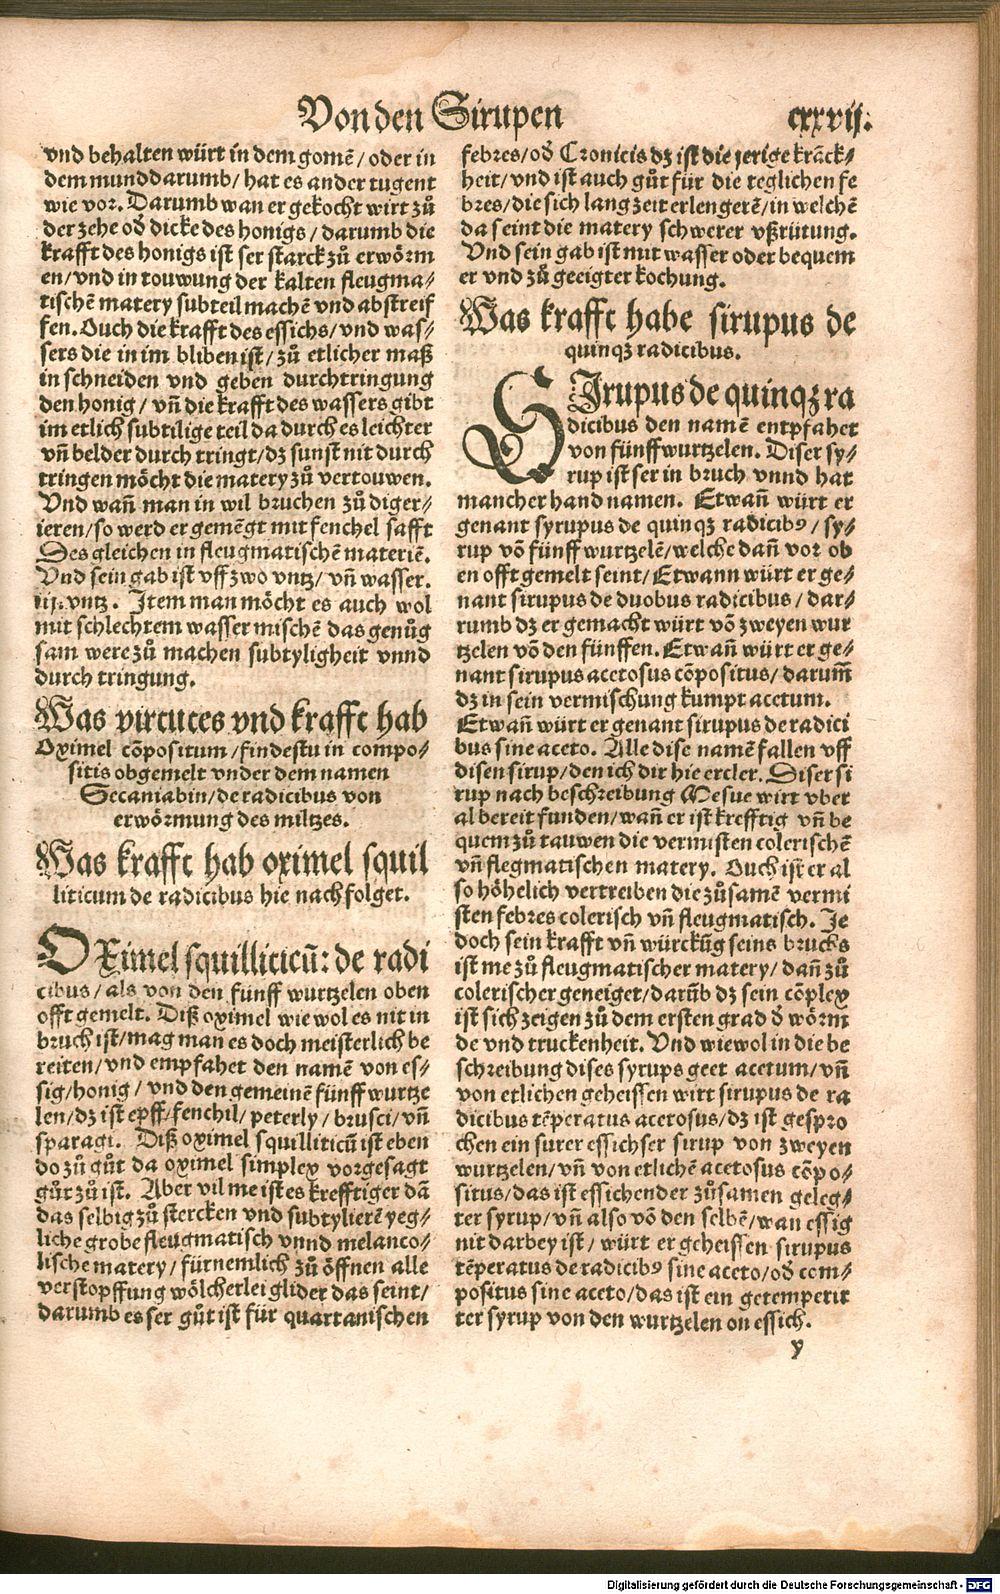 Von den Sirupen
cxxvij.
vnd behalten würt in dem gomē / oder in
dem mund darumb / hat es ander tugent
wie vor. Darumb wan er gekocht wirt zů
der zehe od̕ dicke des honigs / darumb die
krafft des honigs ist ser starck zů erwörm
en / vnd in touwung der kalten fleugma⸗
tischē matery subteil machē vnd abstreif
fen. Ouch die krafft des essichs / vnd was⸗
sers die in im bliben ist / zů etlicher maß
in schneiden vnd geben durchtringung
den honig / vn̄ die krafft des wassers gibt
im etlich subtilige teil da durch es leichter
vn̄ belder durch tringt / dz sunst nit durch
tringen möcht die matery zů vertouwen.
Vnd wan̄ man in wil bruchen zů diger⸗
ieren / so werd er gemēgt mit fenchel safft
Des gleichen in fleugmatischē materiē.
Vnd sein gab ist vff zwo vntz / vn̄ wasser.
iij. vntz. Item man möcht es auch wol
mit schlechtem wasser mischē das genůg
sam were zů machen subtyligheit vnnd
durch tringung.
Was virtutes vnd krafft hab
Oximel cōpositum / findestu in compo⸗
sitis obgemelt vnder dem namen
Secaniabin / de radicibus von
erwörmung des miltzes.
Was krafft hab oximel squil
liticum de radicibus hie nach folget.
OXimel squilliticū: de radi
cibus / als von den fünff wurtzelen oben
offt gemelt. Diß oximel wie wol es nit in
bruch ist / mag man es doch meisterlich be
reiten / vnd empfahet den namē von es⸗
sig / honig / vnd den gemeinē fünff wurtze
len / dz ist epff / fenchil / peterly / brusci / vn̄
sparagi. Diß oximel squilliticū ist eben
do zů gůt da oximel simplex vorgesagt
gůt zů ist. Aber vil me ist es krefftiger dā
das selbig zů stercken vnd subtylierē yeg⸗
liche grobe fleugmatisch vnnd melanco⸗
lische matery / fürnemlich zů öffnen alle
verstopffung wölcherlei glider das seint /
darumb es ser gůt ist für quartanischen
febres / od̕ Cronicis dz ist die jerige krāck⸗
heit / vnd ist auch gůt für die teglichen fe
bres / die sich lang zeit erlengerē / in welchē
da seint die matery schwerer vßrütung.
Vnd sein gab ist mit wasser oder bequem
er vnd zů geeigter kochung.
Was krafft habe sirupus de
quinqꝫ radicibus.
SIrupus de quinqꝫ ra
dicibus den namē entpfahet
von fünff wurtzelen. Diser sy⸗
rup ist ser in bruch vnnd hat
mancher hand namen. Etwan̄ würt er
genant syrupus de quinqꝫ radicibꝰ / sy⸗
rup vō fünff wurtzelē / welche dan̄ vor ob
en offt gemelt seint / Etwann würt er ge⸗
nant sirupus de duobus radicibus / dar⸗
rumb dz er gemacht würt vō zweyen wur
tzelen vō den fünffen. Etwan̄ würt er ge⸗
nant sirupus acetosus cōpositus / darum̄
dz in sein vermischung kumpt acetum.
Etwan̄ würt er genant sirupus de radici
bus sine aceto. Alle dise namē fallen vff
disen sirup / den ich dir hie ercler. Diser si
rup nach beschreibung Mesue wirt vber
al bereit funden / wan̄ er ist krefftig vn̄ be
quem zů tauwen die vermisten colerischē
vn̄ flegmatischen matery. Ouch ist er al
so höhelich vertreiben die zůsamē vermi
sten febres colerisch vn̄ fleugmatisch. Je
doch sein krafft vn̄ würckūg seins bruchs
ist me zů fleugmatischer matery / dan̄ zů
colerischer geneiget / darūb dz sein cōplex
ist sich zeigen zů dem ersten grad d̕ wörm̄
de vnd truckenheit. Vnd wiewol in die be
schreibung dises syrups geet acetum / vn̄
von etlichen geheissen wirt sirupus de ra
dicibus tēperatus acetosus / dz ist gespro
chen ein surer essichser sirup von zweyen
wurtzelen / vn̄ von etlichē acetosus cōpo⸗
situs / das ist essichender zůsamen geleg⸗
ter syrup / vn̄ also vō den selbē / wan essig
nit darbey ist / würt er geheissen sirupus
tēperatus de radicibꝰ sine aceto / od̕ com⸗
positus sine aceto / das ist ein getemperit
ter syrup von den wurtzelen on essich.
y
Digitalisierung gefördert durch die Deutsche Forschungsgemeinschaft - DFG